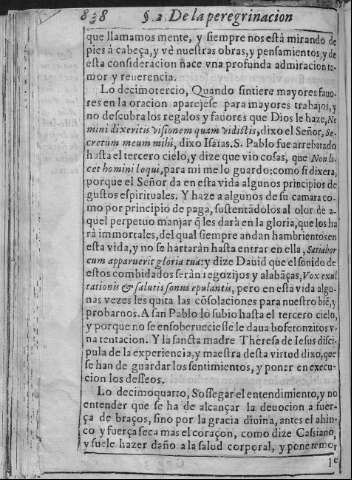 838 §. 2. De la peregrinacion
que llamamos mente, y siempre nos está mirando de
pies á cabeça, y vé nuestras obras, y pensamientos, y de
esta consideracion nace vna profunda admiracion te-
mor y reuerencia.
Lo decimotercio, Quando sintiere mayores fauo
res en la oracion aparejese para mayores trabajos, y
no descubra los regalos y fauores que Dios le haze, Ne
mini dixeritis visionem quam vidistis, dixo el Señor, Se-
cretum meum mihi, dixo Isaías. S. Pablo fue arrebatado
hasta el tercero cielo, y dize que vio cosas, que Non li-
cet homini loqui, para mi me lo guardo: como si dixera,
porque el Señor da en esta vida algunos principios de
gustos espirituales. Y haze a algunos de su camara co-
mo por principio de paga, sustentādolos al olor de a-
quel perpetuo manjar q̃ les dará en la gloria, que los ha
rá immortales, del qual siempre andan hambrientos en
esta vida, y no se hartarán hasta entrar en ella, Satiabor
cum apparuerit gloria tua: y dize Dauid que el sonido de
estos combidados serán regozijos y alabāças, Vox exul
tationis & salutis sonus epulantis, pero en esta vida algu-
nas vezes les quita las cōsolaciones para nuestro biē, y
probarnos. A san Pablo lo subio hasta el tercero cielo,
y porque no se ensoberueciesse le daua bofetonzitos v-
na tentacion. Y la sancta madre Theresa de Iesus disci-
pula de la experiencia, y maestra desta virtud dixo, que
se han de guardar los sentimientos, y poner en execu-
cion los desseos.
Lo decimoquarto, Sossegar el entendimiento, y no
entender que se ha de alcançar la deuocion a fuer-
ça de braços, sino por la gracia diuina, antes el ahin-
co y fuerça seca mas el coraçon, como dize Casiano,
y suele hazer daño a la salud corporal, y ponernos